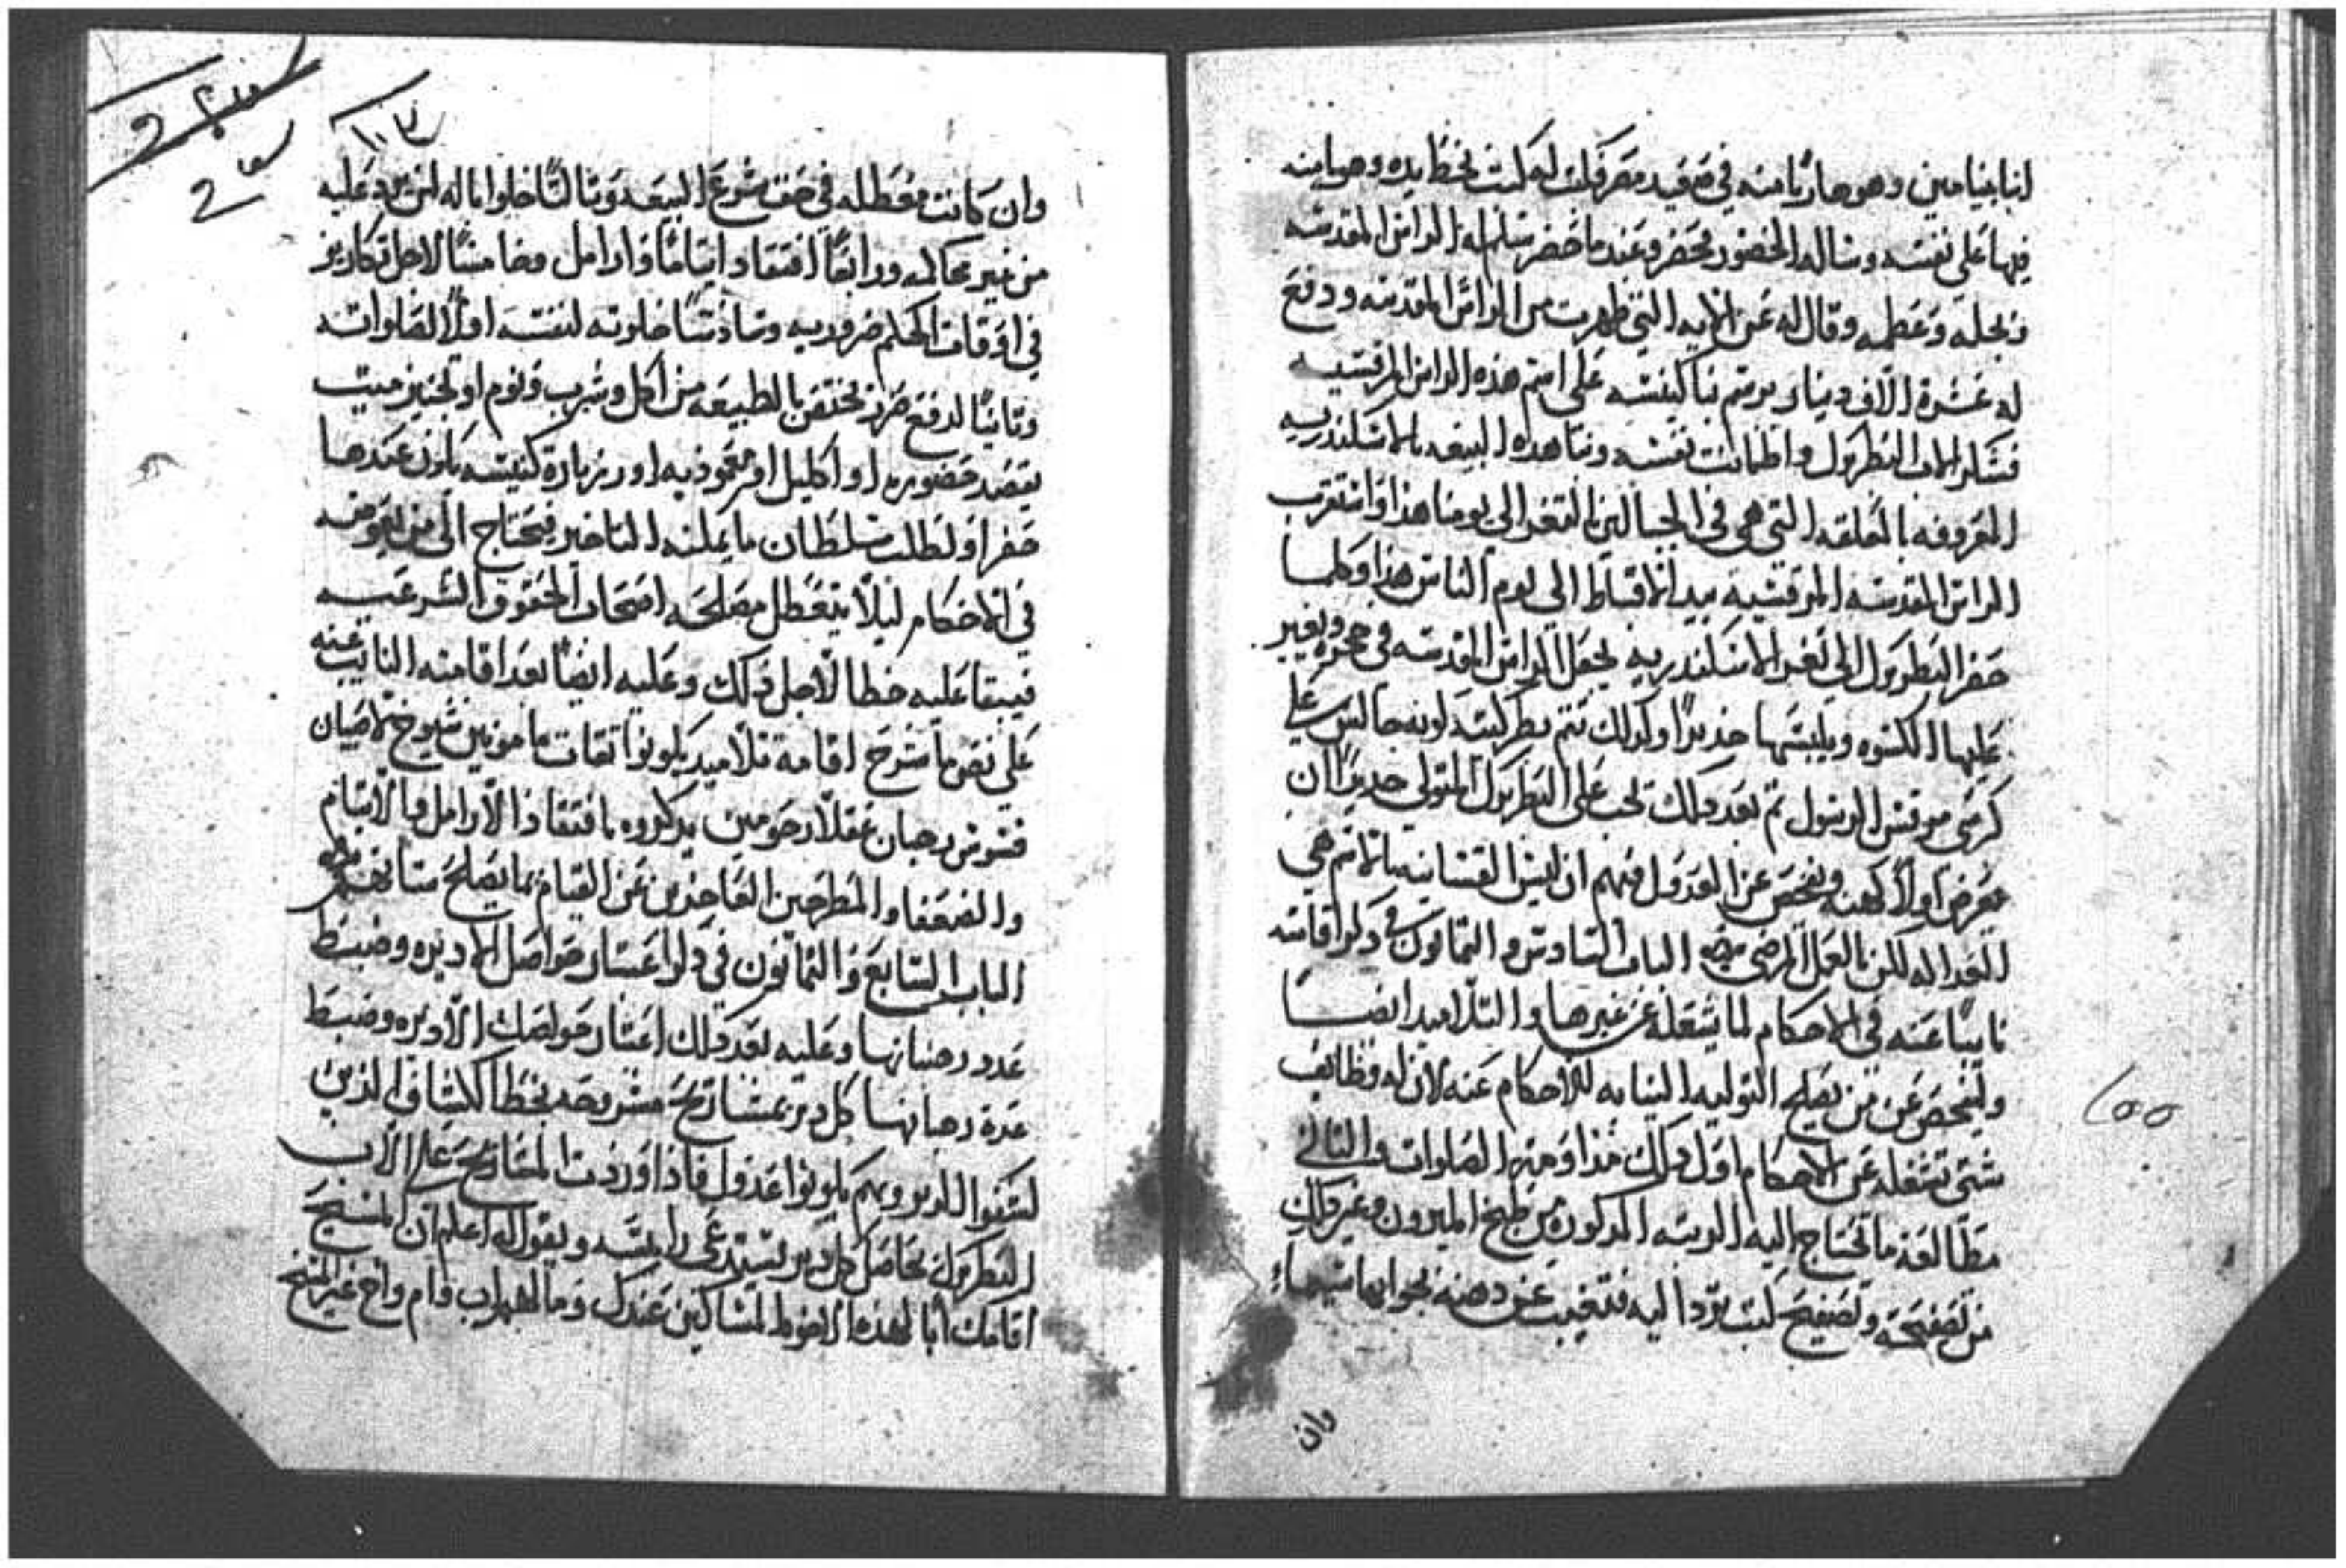 انبا بنيامين وهو هاربا منه في صعيد مصر فكتب له كتب بخط يده وهو يامنه
فيها على نفسه وساله الحضور فحضر وعندما حضر سلم له الراس المقدسه
وبجله وعظمه وقال له عن الايه التي ظهرت من الراس المقدسه ودفع
له عشرة الاف دينار برسم بنا كنيسه على اسم هذه الراس المرقسيه
فشكر الاب البطريرك واطمانت نفسه وبنا هذه البيعه بالاسكندريه
المعروفه بالمعلقه التي هي في بالثغر الى يومنا هذا واستقرت
الراس المقدسه المرقسيه بيد الاقباط الي يوم الناس هذا وكلما
حضر البطريرك الى ثغر الاسكندريه يجعل الراس المقدسه في حجره ويغير
عليها الكسوه ويلبسها جديدا وكذلك تتم بطركيته لونه جالس علي
كرسي مرقس الرسول ثم بعد ذلك يجب على البطريرك المتولى جديدا ان
يعرض اولا كهنه ويفحص عن العدول منهم اذ ليس القسانيه بالاسم هي
العداله لكن بالعمل المرضي الباب السادس والثمانون في ذكر اقامته
نايبا عنه في الاحكام لما يشغله عن غيرها والتلاميد ايضا
وليفحص عن من يصلح التوليه النيابه للاحكام عنه لان له وظايف
شتى تشغله عن الاحكام اول ذلك الصلوات والثاني
مطالعة ما تحتاج اليه الرتبه المذكوره من طبخ الميرون وغير ذلك
من تصفيحه وتصفيح كتب ترد اليه فتغيب عن دهنه بجوابها سيما
وان
وان كانت معطله في حق شرع البيعه وثالثا خلوا باله لمن يرد عليه
من غير محاكمه ورابعا افتقاد ايتاما وارامل وخامسا لاجل تكاريز
في اوقات الحكم ضروريه وسادسا خلوته لنفسه اولا لصلواته
وثانيا لدفع ضرر يختص بالطبيعه من اكل وشرب ونوم او تجنيز ميت
يقصد حضوره او اكليل او معموديه او زيارة كنيسه يكون عندها
حفر او لطلب سلطان ما يمكنه التاخير فيحتاج الى من يعوضه
في الاحكام ليلا يتعطل مصلحه اصحاب الحقوق الشرعيه
فيبقا عليه خطا لاجل ذلك وعليه ايضا بعد اقامته النايب عنه
علي نص ما شرح اقامة تلاميد يكونوا ثقات مامونين شيوخ لا صبيان
قسوس رهبان عقلا رحومين يدكروه بافتقاد الارامل والايتام
والضعفا والمطرحين العاجزين عن القيام بما يصلح
الباب السابع والثمانون في ذكر اعتبار حواصل الاديره وضبط
عدد رهبانها وعليه بعد ذلك اعتبار حواصل الاديره وضبط
عدة رهبانها كل دير بمشاريح مشروحه بخط الكشاف الذين
لشفوا الدير وبهم يكونوا عدول فاذا وردت المشاريح على الاب
البطريرك بحاصل كل دير يستدعي رايسه ويقول له اعلم ان المسيح
اقامك ابا لهذه الاخوه المساكين عندك وما لهم اب وام واخ غير المسيح